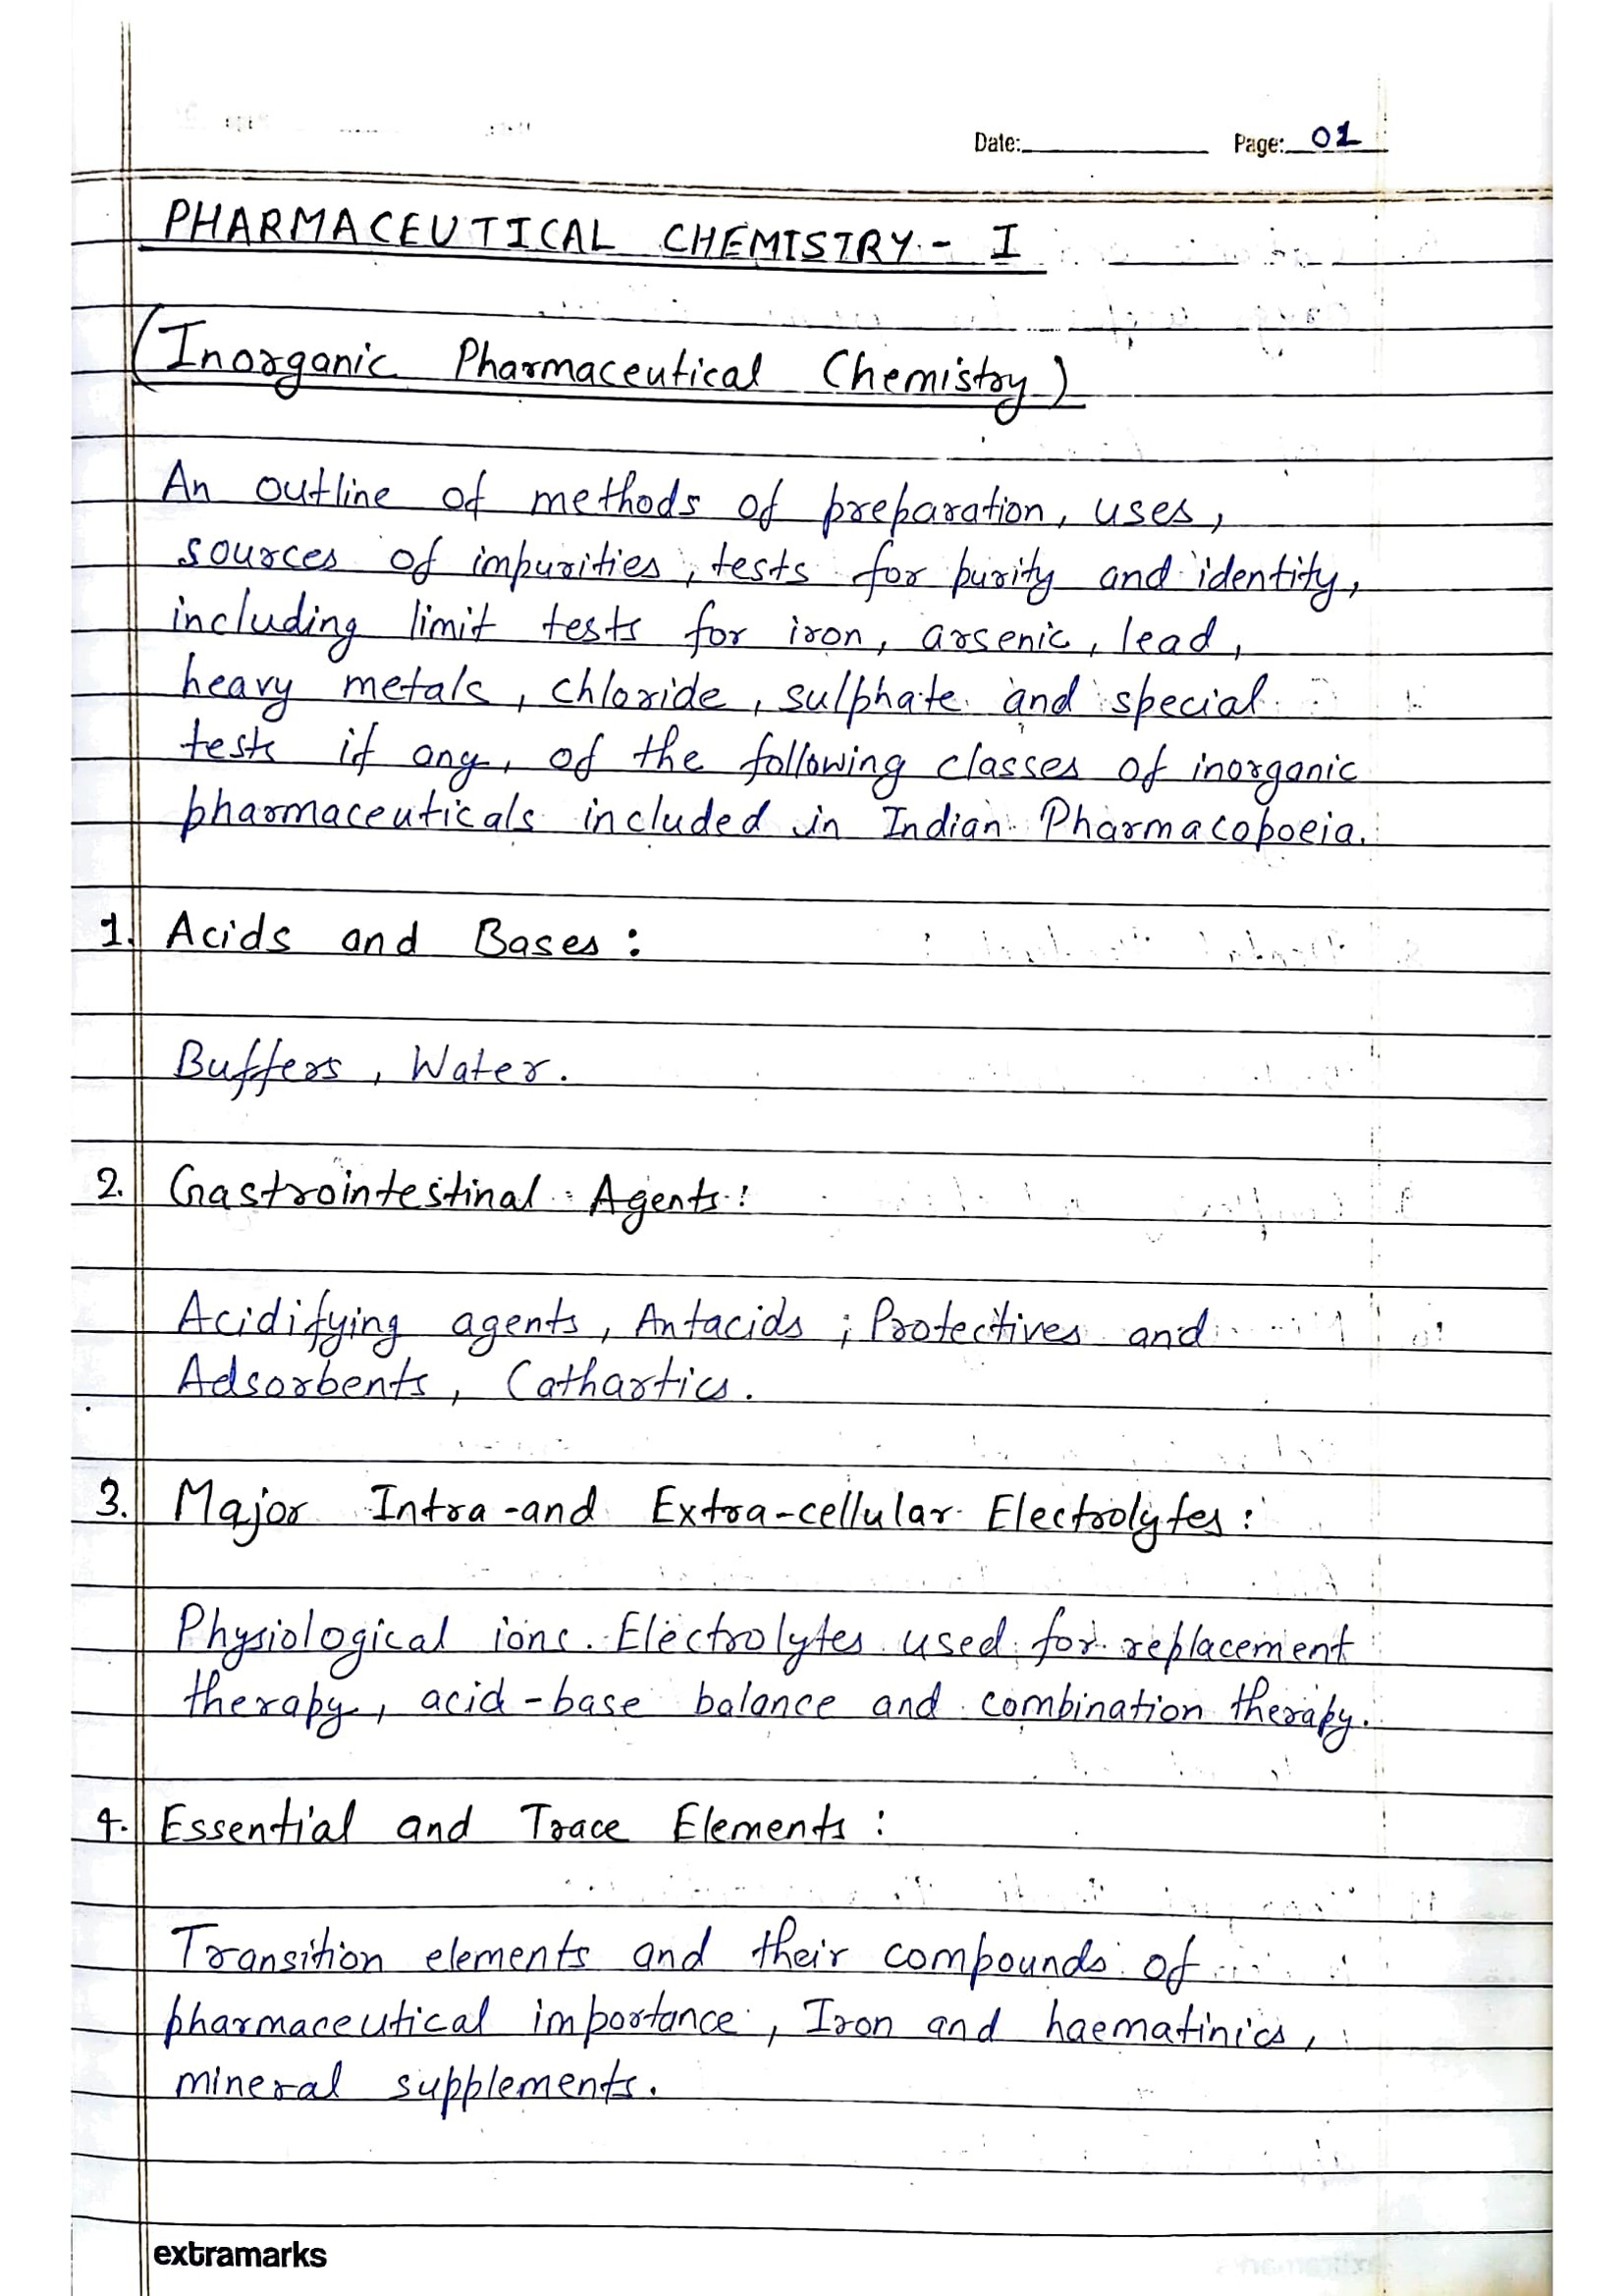 Date: Page: 01
PHARMACEUTICAL CHEMISTRY - I
(Inorganic Pharmaceutical Chemistry)
An outline of methods of preparation, uses,
sources of impurities, tests for purity and identity,
including limit tests for iron, arsenic, lead,
heavy metals, chloride, sulphate and special
tests if any, of the following classes of inorganic
pharmaceuticals included in Indian Pharmacopoeia.
1. Acids and Bases :
Buffers, Water.
2. Gastrointestinal Agents :
Acidifying agents, Antacids ; Protectives and
Adsorbents, Cathartics.
3. Major Intra-and Extra-cellular Electrolytes :
Physiological ions. Electrolytes used for replacement
therapy, acid-base balance and combination therapy.
4. Essential and Trace Elements :
Transition elements and their compounds of
pharmaceutical importance, Iron and haematinics,
mineral supplements.
extramarks